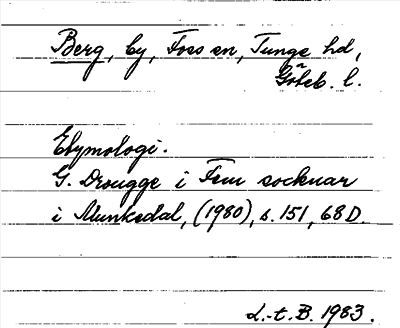 Berg, by, Foss sn, Tunge hd,
Göteb. l.
Etymologi.
G. Drougge i Fem socknar
i Munkedal, (1980), s. 151, 68 D.
L.-t. B. 1983.